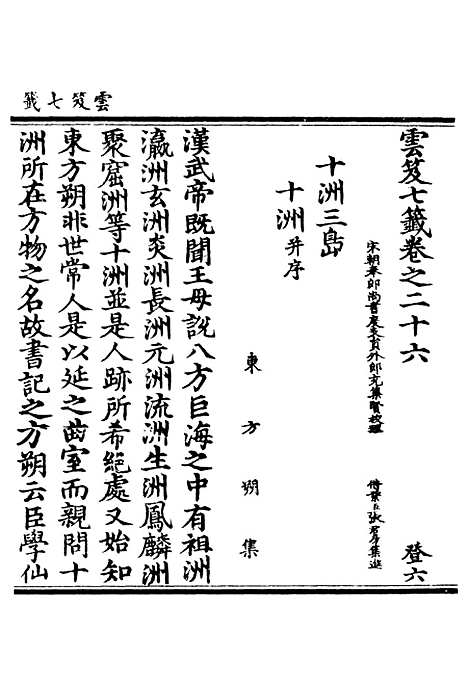 雲笈七籤
雲笈七籤卷之二十六 登六
宋朝奉郎尚書度支員外郎充集賢校理 張君房集進
十洲三島
十洲并序
東方朔集
漢武帝既聞王母說八方巨海之中有祖洲
瀛洲玄洲炎洲長洲元洲流洲生洲鳳麟洲
聚窟洲等十洲並是人跡所希絕處又始知
東方朔非世常人是以延之曲室而親問十
洲所在方物之名故書記之方朔云臣學仙